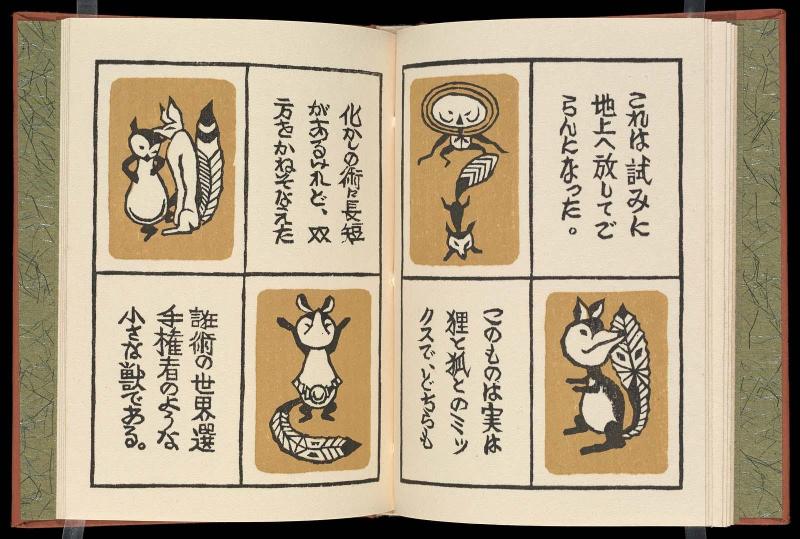 これは試みに
地上へ放してご
らんになった。
このものは実は
狸と狐とのミッ
クスで、どちらも
化かしの術に長短
があるけれど、双
方をかねそなえた
誑術の世界選
手権者のような
小さな獣である。